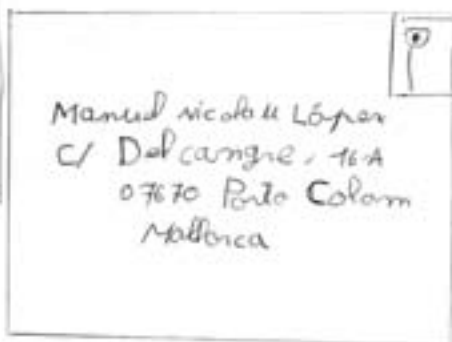 Manuel Nicolau López
C/ Del cangre, 16-A
07670 Porto Colom
Mallorca